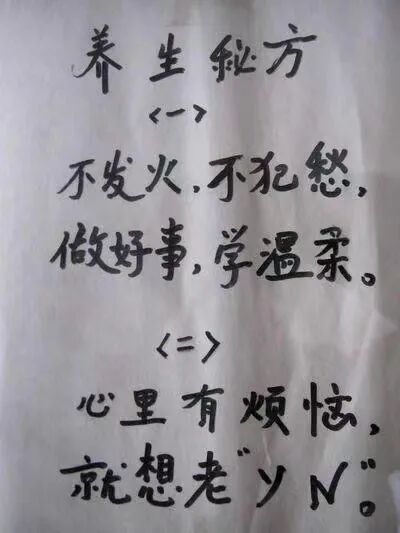 养生秘方
<一>
不发火，不犯愁，
做好事，学温柔。
<二>
心里有烦恼，
就想老“y N”。